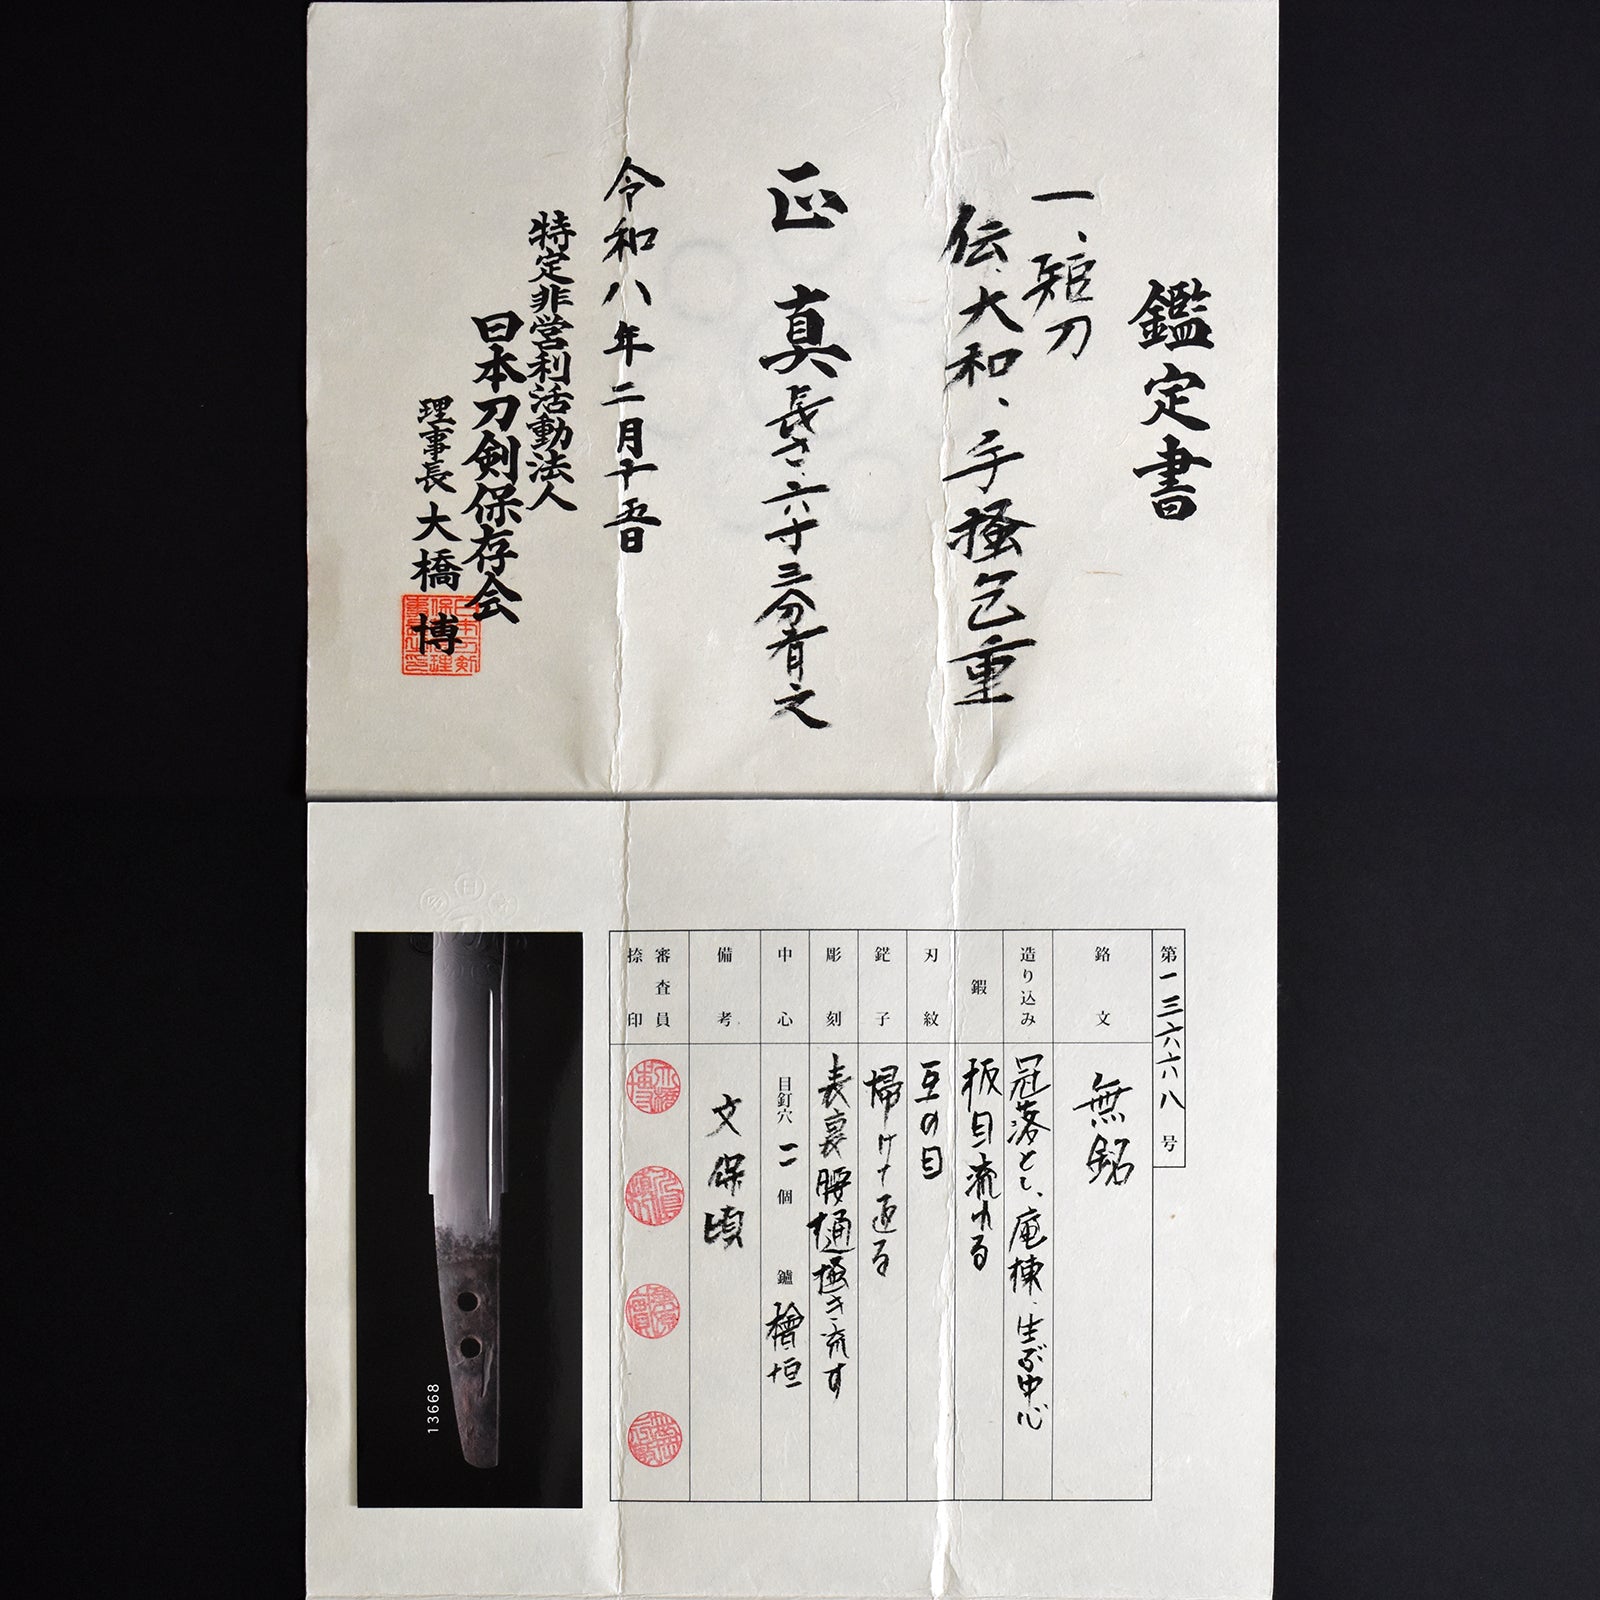 鑑定書
一、短刀
伝、大和、手掻包重
正真 長さ、六寸三分有之
令和八年二月十五日
特定非営利活動法人
日本刀剣保存会
理事長 大橋 博
第一三六六八号
銘文 無銘
造り込み 冠落とし、庵棟、生ぶ中心
鍜 板目流れる
刃紋 互の目
鋩子 掃けて返る
彫刻 表裏腰樋掻き流す
中心 目釘穴 二個 鑢 檜垣
備考 文保頃
審査員
捺印
13668